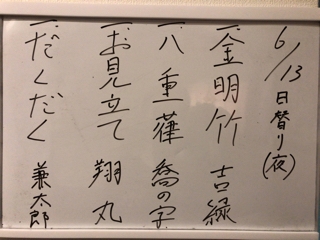 6/13 日替り(夜)
一、金明竹 吉緑
一、八重葎 喬の字
一、お見立て 翔丸
一、だくだく 兼太郎